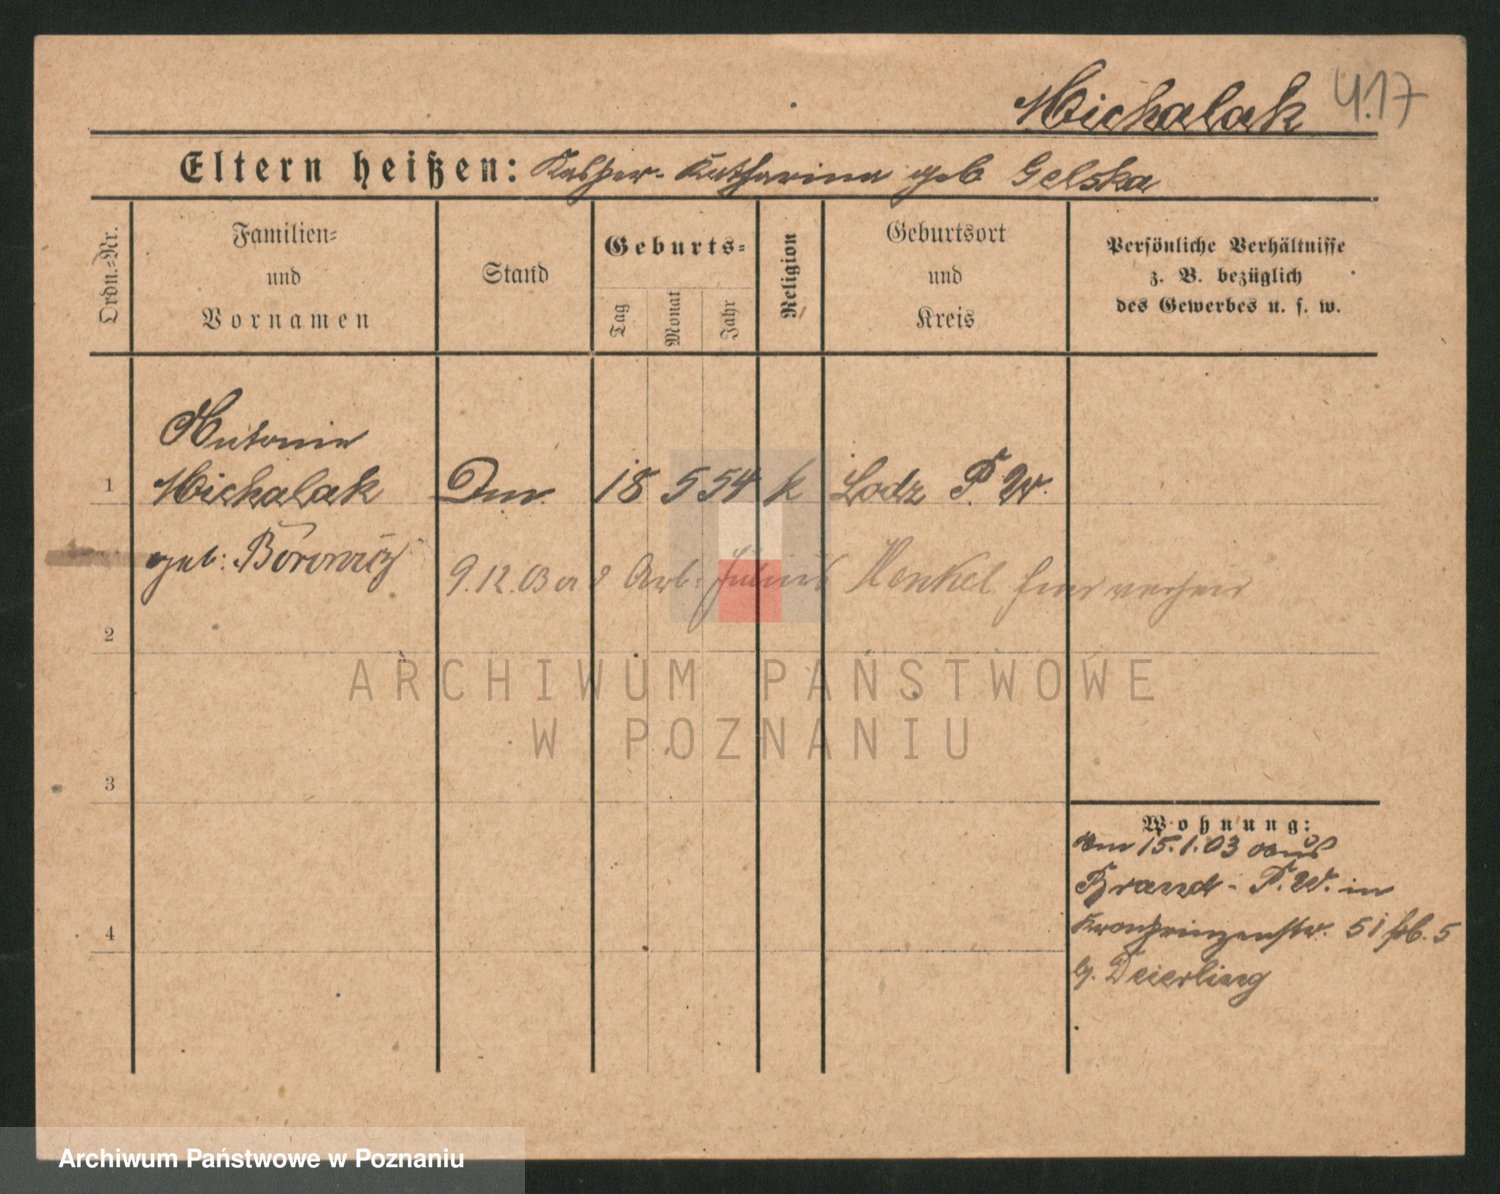 Michalak 417
Eltern heißen: Kasper - Katharina geb Gelska
Ordn.-Nr.
Familien-
und
Vornamen
Stand
Geburts-
Tag
Monat
Jahr
Religion
Geburtsort
und
Kreis
Persönliche Verhältnisse
z. B. bezüglich
des Gewerbes u. s. w.
Antonie
1 Michalak 18 5 54 k Lodz P. W.
geb:
9.12.03 Arb. Julius Henkel
2
ARCHIWUM PAŃSTWOWE
W POZNANIU
3
Wohnung:
am 15.1.03 aus
Brand - P. W. in
4 Kronprinzenstr. 51 5
b. Deierling
Archiwum Państwowe w Poznaniu